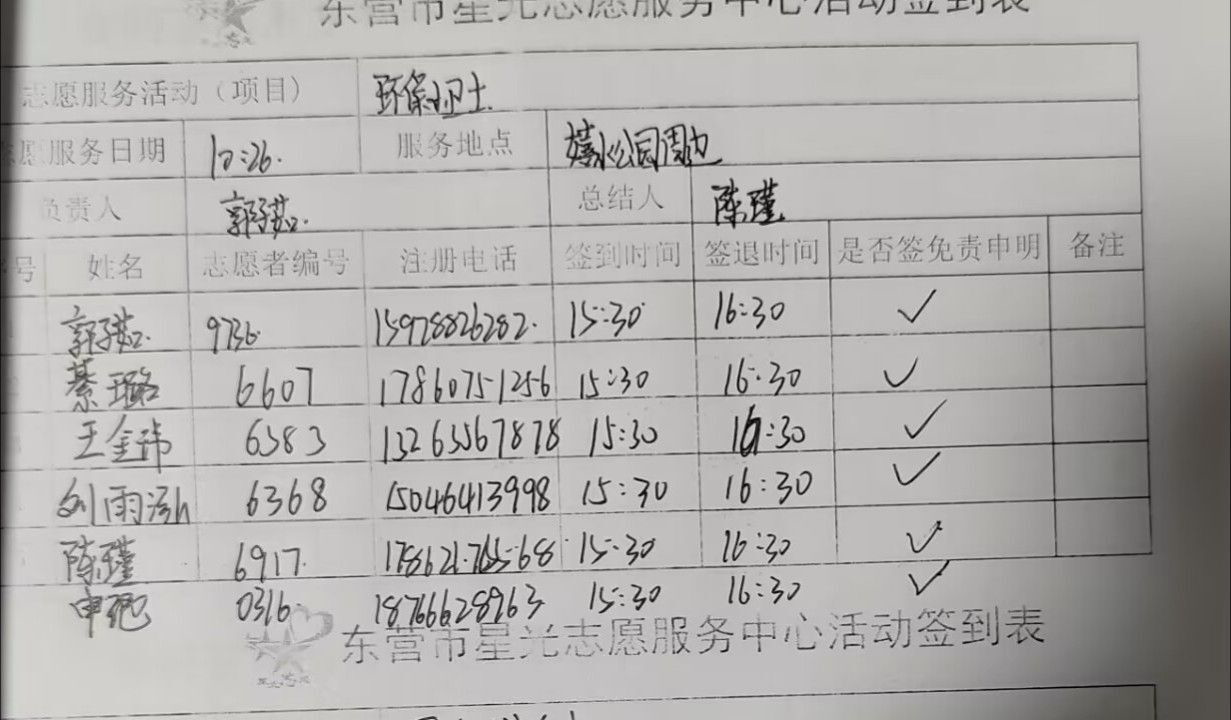 东营市星光志愿服务中心活动签到表
志愿服务活动（项目） 环保小卫士
志愿服务日期 10:26. 服务地点 公园周边
负责人 郭子茹. 总结人 陈瑾
号 姓名 志愿者编号 注册电话 签到时间 签退时间 是否签免责申明 备注
郭子茹. 9736. 15978826282. 15:30 16:30 ✓
綦璐 6607 17860751256 15:30 16:30 ✓
王金玮 6383 13263567878 15:30 16:30 ✓
刘雨 6368 15046413998 15:30 16:30 ✓
陈瑾 6917. 15:30 16:30 ✓
申 0316. 18766628963 15:30 16:30 ✓
东营市星光志愿服务中心活动签到表